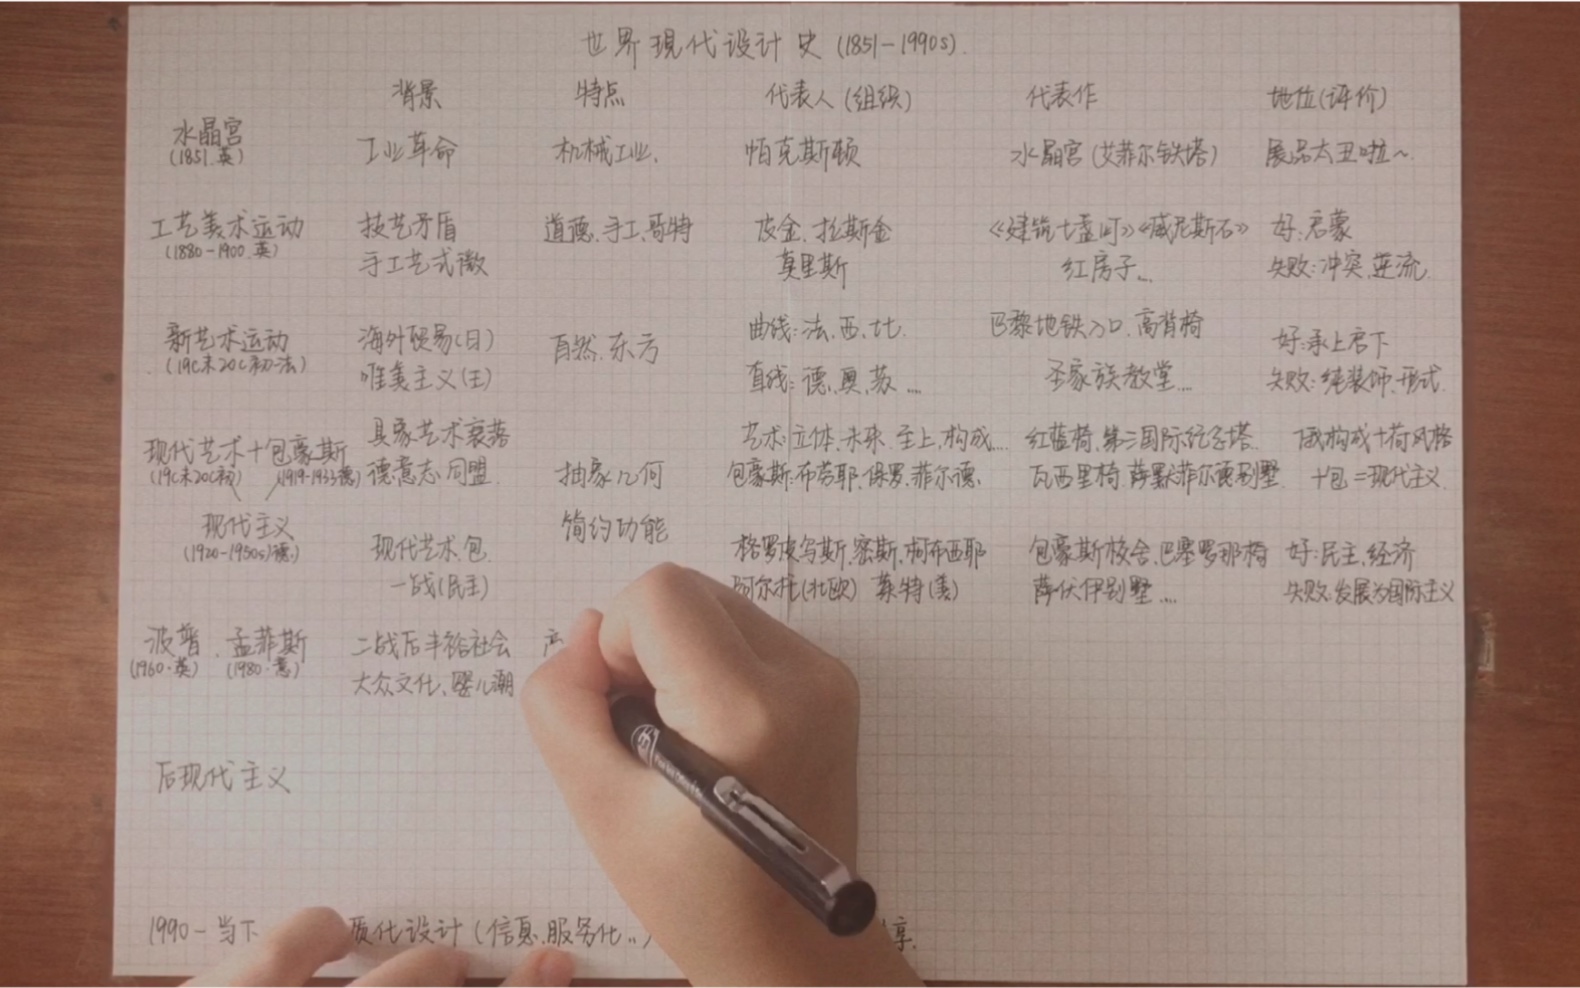 世界现代设计史(1851-1990s).
背景 特点 代表人(组织) 代表作 地位(评价)
水晶宫 工业革命 机械工业、 帕克斯顿 水晶宫(艾菲尔铁塔) 展品太丑啦~
(1851.英)
工艺美术运动 技艺矛盾 道德.手工.哥特 皮金、拉斯金 《建筑七盏灯》《威尼斯石》 好:启蒙
(1880-1900.英) 手工艺式微 莫里斯 红房子... 失败:冲突.逆流.
新艺术运动 海外贸易(日) 自然.东方 曲线:法、西、比. 巴黎地铁入口.高背椅 好:承上启下
(19c末20c初·法) 唯美主义(王) 直线:德、奥、苏.... 圣家族教堂... 失败:纯装饰.形式.
现代艺术+包豪斯 具象艺术衰落 艺术:立体.未来.至上.构成... 红蓝椅.第三国际纪念塔.. 俄构成+荷风格
(19c末20c初) (1919-1933德) 德意志.同盟. 抽象几何 包豪斯:布劳耶.保罗.菲尔德. 瓦西里椅.萨默菲尔德别墅. +包=现代主义.
现代主义 简约功能
(1920-1950s)德.) 现代艺术.包. 格罗皮乌斯.密斯.柯布西耶 包豪斯校舍.巴塞罗那椅 好:民主.经济
一战(民主) 阿尔托(北欧) 莱特(美) 萨伏伊别墅... 失败:发展为国际主义
波普.孟菲斯 二战后丰裕社会
(1960·英) (1980·意) 大众文化、婴儿潮
后现代主义
1990-当下 质化设计(信息.服务化..) 享.